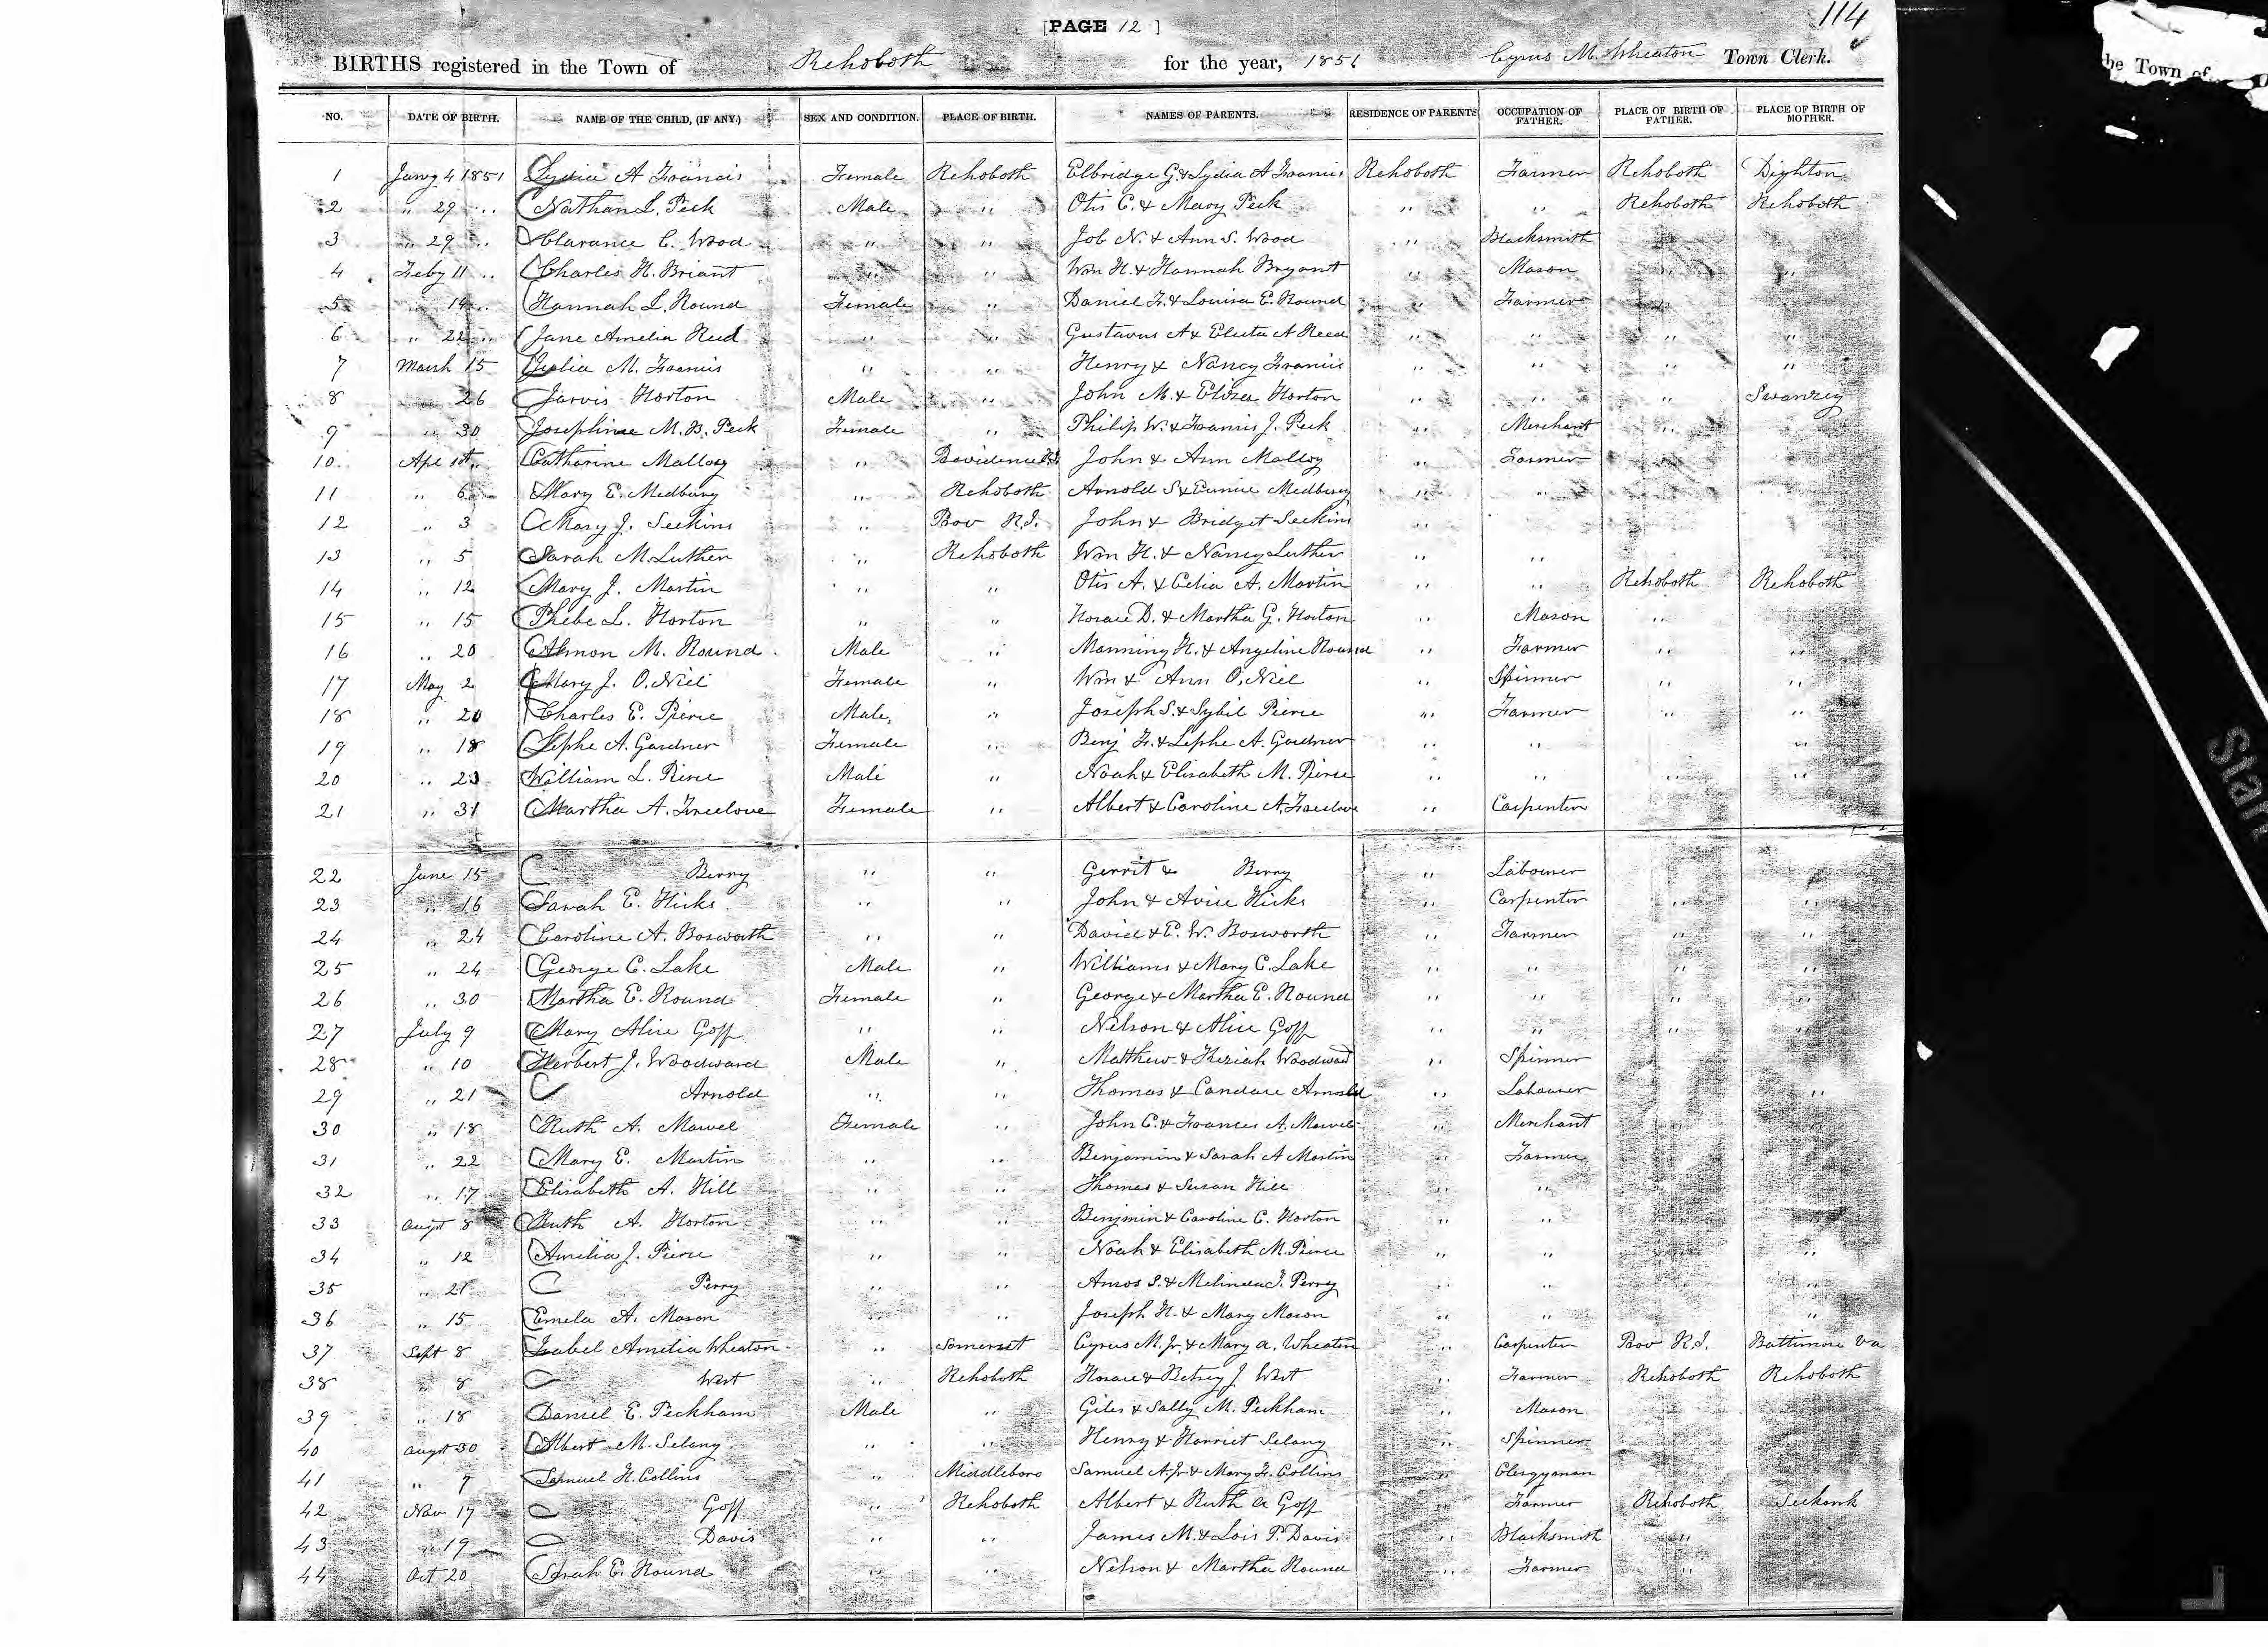 114
[PAGE 12 ]
BIRTHS registered in the Town of Rehoboth for the year, 1851 Cyrus M. Wheaton Town Clerk.
NO. DATE OF BIRTH. NAME OF THE CHILD, (IF ANY.) SEX AND CONDITION. PLACE OF BIRTH. NAMES OF PARENTS. RESIDENCE OF PARENTS OCCUPATION OF FATHER. PLACE OF BIRTH OF FATHER. PLACE OF BIRTH OF MOTHER.
1 Jany 4 1851 Lydia A Francis Female Rehoboth Elbridge G. & Lydia A Francis Rehoboth Farmer Rehoboth Dighton
2 " 29 " Nathan L. Peck Male " Otis C. & Mary Peck " " Rehoboth Rehoboth
3 " 29 " Clarance C. Wood " " Job N. & Ann S. Wood " Blacksmith
4 Feby 11 " Charles H. Briant " " Wm H. & Hannah Bryant " Mason " "
5 " 14 " Hannah L. Round Female " Daniel F. & Louisa E. Round " Farmer "
6 " 22 " Jane Amelia Reed " " Gustavus A & Electa A Reed " " " "
7 March 15 Julia M. Francis " " Henry & Nancy Francis " " " "
8 26 Jarvis Horton Male " John M. & Eliza Horton " " " Swanzey
9 " 30 Josephine M. B. Peck Female " Philip W. & Francis J. Peck " Merchant "
10 Apl 1st " Catharine Malloy " Providence R.I. John & Ann Malloy " Farmer
11 " 6 Mary E. Medbury " Rehoboth Arnold S & Eunice Medbury " "
12 " 3 Mary J. Seekins " Prov R.I. John & Bridget Seekins "
13 " 5 Sarah M. Luther " Rehoboth Wm H. & Nancy Luther " "
14 " 12 Mary J. Martin " " Otis A. & Celia A. Martin " " Rehoboth Rehoboth
15 " 15 Phebe L. Horton " " Horace D. & Martha G. Horton " Mason "
16 " 20 Almon M. Round Male " Manning H. & Angeline Round " Farmer " "
17 May 2 Mary J. O. Niel Female " Wm & Ann O. Niel " Spinner " "
18 " 20 Charles E. Pierce Male " Joseph S. & Sybil Pierce " Farmer " "
19 " 18 Lephe A. Gardner Female " Benj F. & Lephe A. Gardner " " "
20 " 23 William L. Pierce Male " Noah & Elisabeth M. Pierce " " " "
21 " 31 Martha A. Freelove Female " Albert & Caroline A. Freelove " Carpenter
22 June 15 Berry " " Gerrit & Berry " Labourer
23 " 16 Sarah E. Hicks " " John & Avice Hicks " Carpenter " "
24 " 24 Caroline A. Bosworth " " David & E. W. Bosworth " Farmer " "
25 " 24 George C. Lake Male " Williams & Mary C. Lake " " " "
26 " 30 Martha E. Round Female " George & Martha E. Round " " " "
27 July 9 Mary Alice Goff " " Nelson & Alice Goff " " " "
28 " 10 Herbert J. Woodward Male " Matthew & Keziah Woodward " Spinner
29 " 21 Arnold " " Thomas & Candace Arnold " Labourer "
30 " 18 Ruth A. Marvel Female " John C. & Frances A. Marvel " Merchant
31 " 22 Mary E. Martin " " Benjamin & Sarah A Martin " Farmer
32 " 17 Elisabeth A. Hill " " Thomas & Susan Hill " "
33 Augst 8 Ruth A. Horton " " Benjmin & Caroline C. Horton " "
34 " 12 Amelia J. Pierce " " Noah & Elisabeth M. Pierce " " "
35 " 21 Perry " " Amos S. & Melinda J. Perry " " "
36 " 15 Emela A. Mason " " Joseph H. & Mary Mason " " "
37 Sept 8 Isabel Amelia Wheaton " Somerset Cyrus M. Jr. & Mary A. Wheaton " Carpenter Prov R.I. Baltimore Va
38 " 8 West " Rehoboth Horace & Betsey J West " Farmer Rehoboth Rehoboth
39 " 18 Daniel E. Peckham Male " Giles & Sally M. Peckham " Mason
40 Augst 30 Albert M. Selany " " Henry & Harriet Selany " Spinner
41 " 7 Samuel H. Collins " Middleboro Samuel A. Jr & Mary F. Collins " Clergyman
42 Nov 17 Goff " Rehoboth Albert & Ruth A Goff " Farmer Rehoboth Seekonk
43 " 19 Davis " " James M. & Lois P. Davis " Blacksmith "
44 Oct 20 Sarah E. Round " " Nelson & Martha Round " Farmer "
the Town of